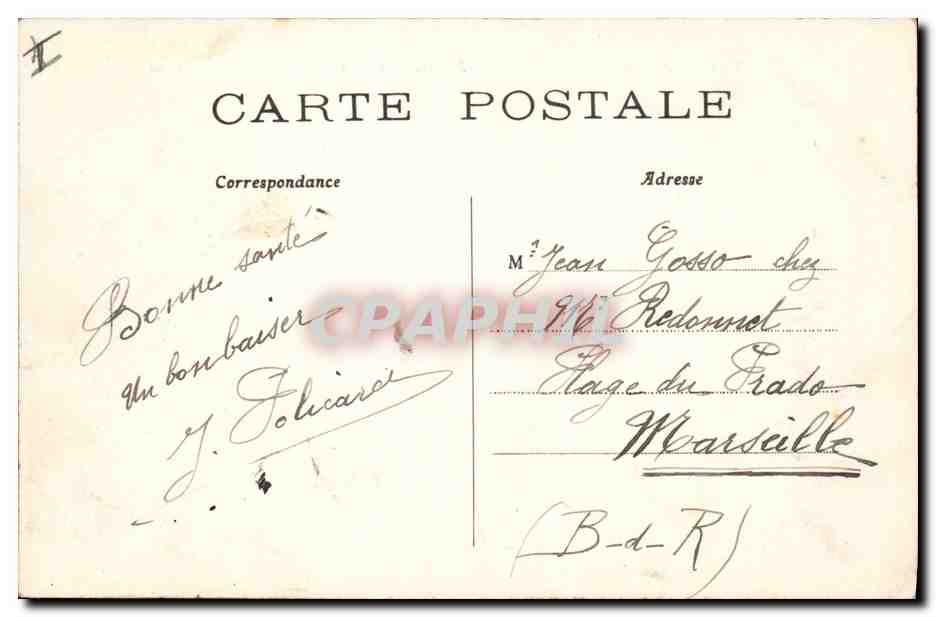 I
CARTE POSTALE
Correspondance
Bonne santé
un bon baiser
J. Policard
Adresse
Mr Jean Gosso chez
Mr Redonnet
Plage du Prado
Marseille
(B-d-R)
CPAPHIL